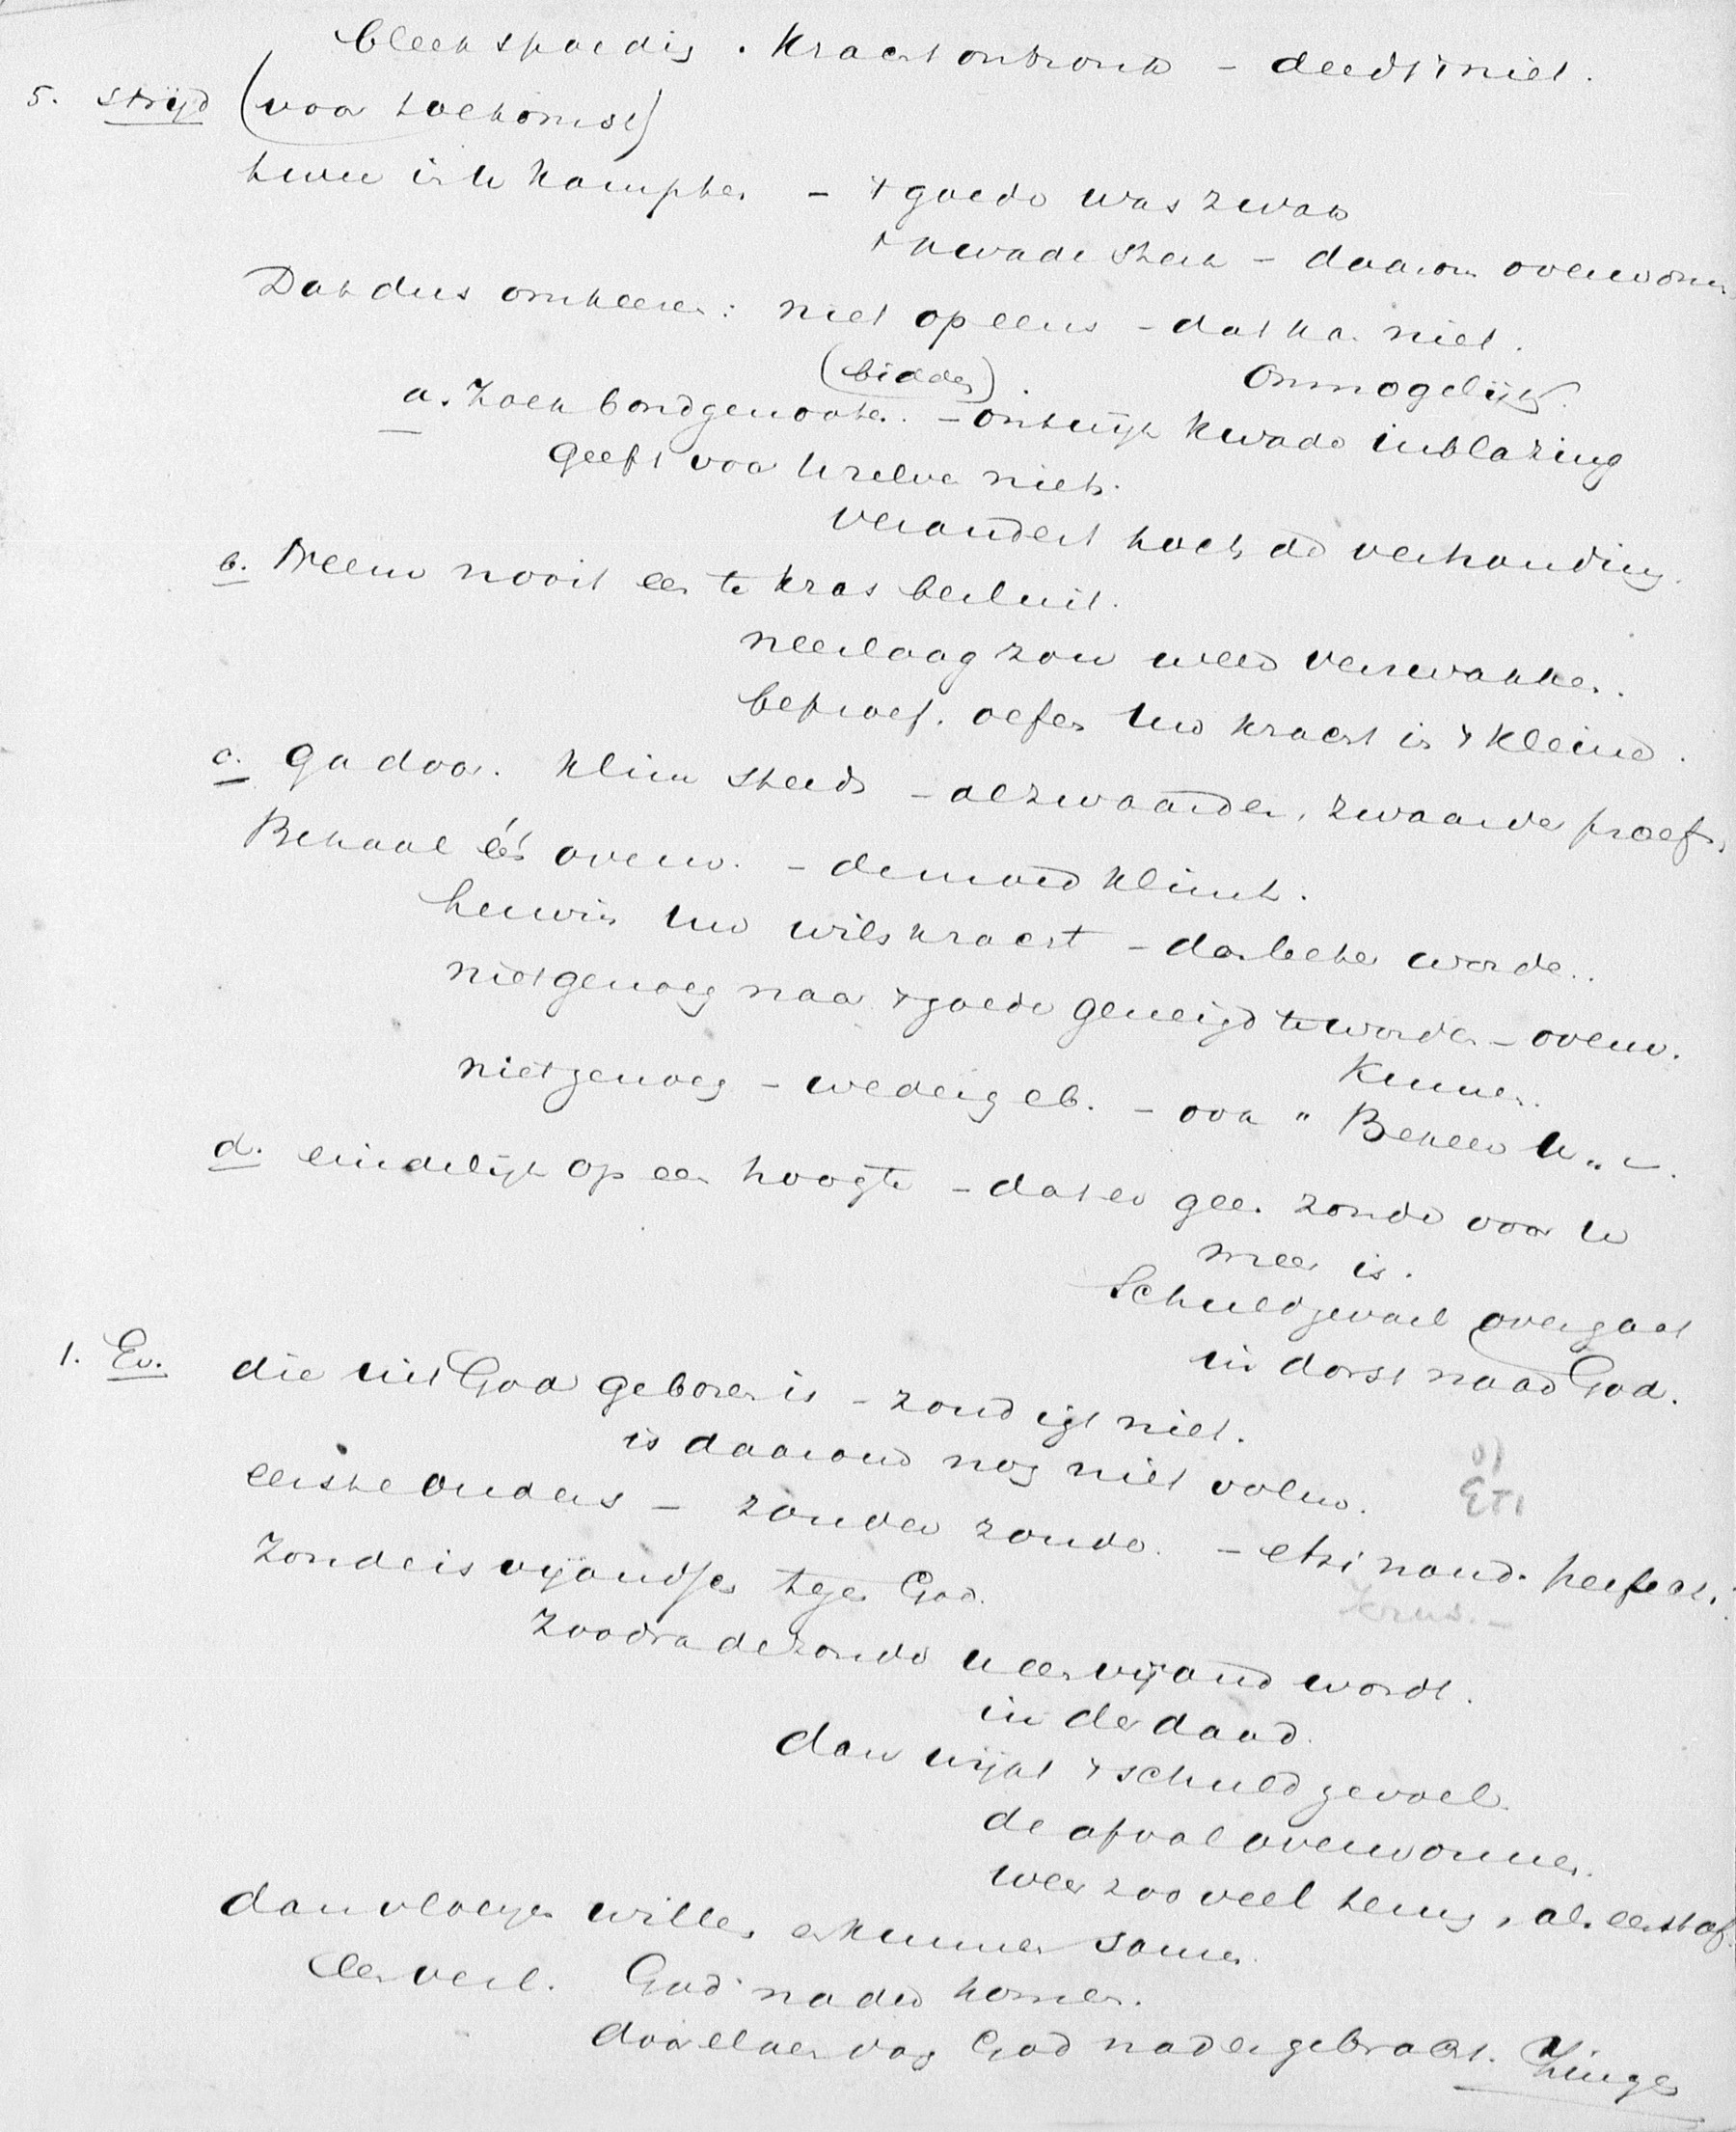 bleek spoedig. Kracht ontbrak – deedt 't niet.
5. strijd (voor toekomst)
twee in u kampten – 't goede was zwak
't kwade sterk – daarom overwonn
Dat dus omkeeren: niet opeens – dat ka. niet.
(bidden). Onmogelijk.
a. Zoek bondgenooten. – ontwijk kwade inblazing
geeft voor u zelve niets.
verandert toch de verhouding.
b. Neem nooit een te kras besluit.
neerlaag zou weer verzwakken.
beproef. oefen uw kracht in 't kleine.
c. ga door. klim steeds – al zwaarder, zwaarder proef.
Behaal één overw. – de moed klimt.
herwin uw wilskracht – dan beter worden.
niet genoeg naar 't goede geneigd te worden – overw.
kunnen.
niet genoeg – wedergeb. – ook " Bekeer u "
d. eindelijk op een hoogte – dat er geen zonde voor u
meer is.
Schuldgevoel overgaat
in dorst naar God.
1. Ev. die uit God geboren is – zondigt niet.
is daarom nog niet volm.
eerste ouders – zonder zonde. – niet perfect.
Zonde is vijandsch. tegen God.
Jezus. –
Zoodra de zonde u een vijand wordt.
in de daad.
dan wijkt 't schuldgevoel.
de afval overwonnen.
weer zooveel terug, als eerst af.
dan vloeyen willen en kunnen samen.
een verl. God nader komen.
door elken dag God nader gebracht. Zingen